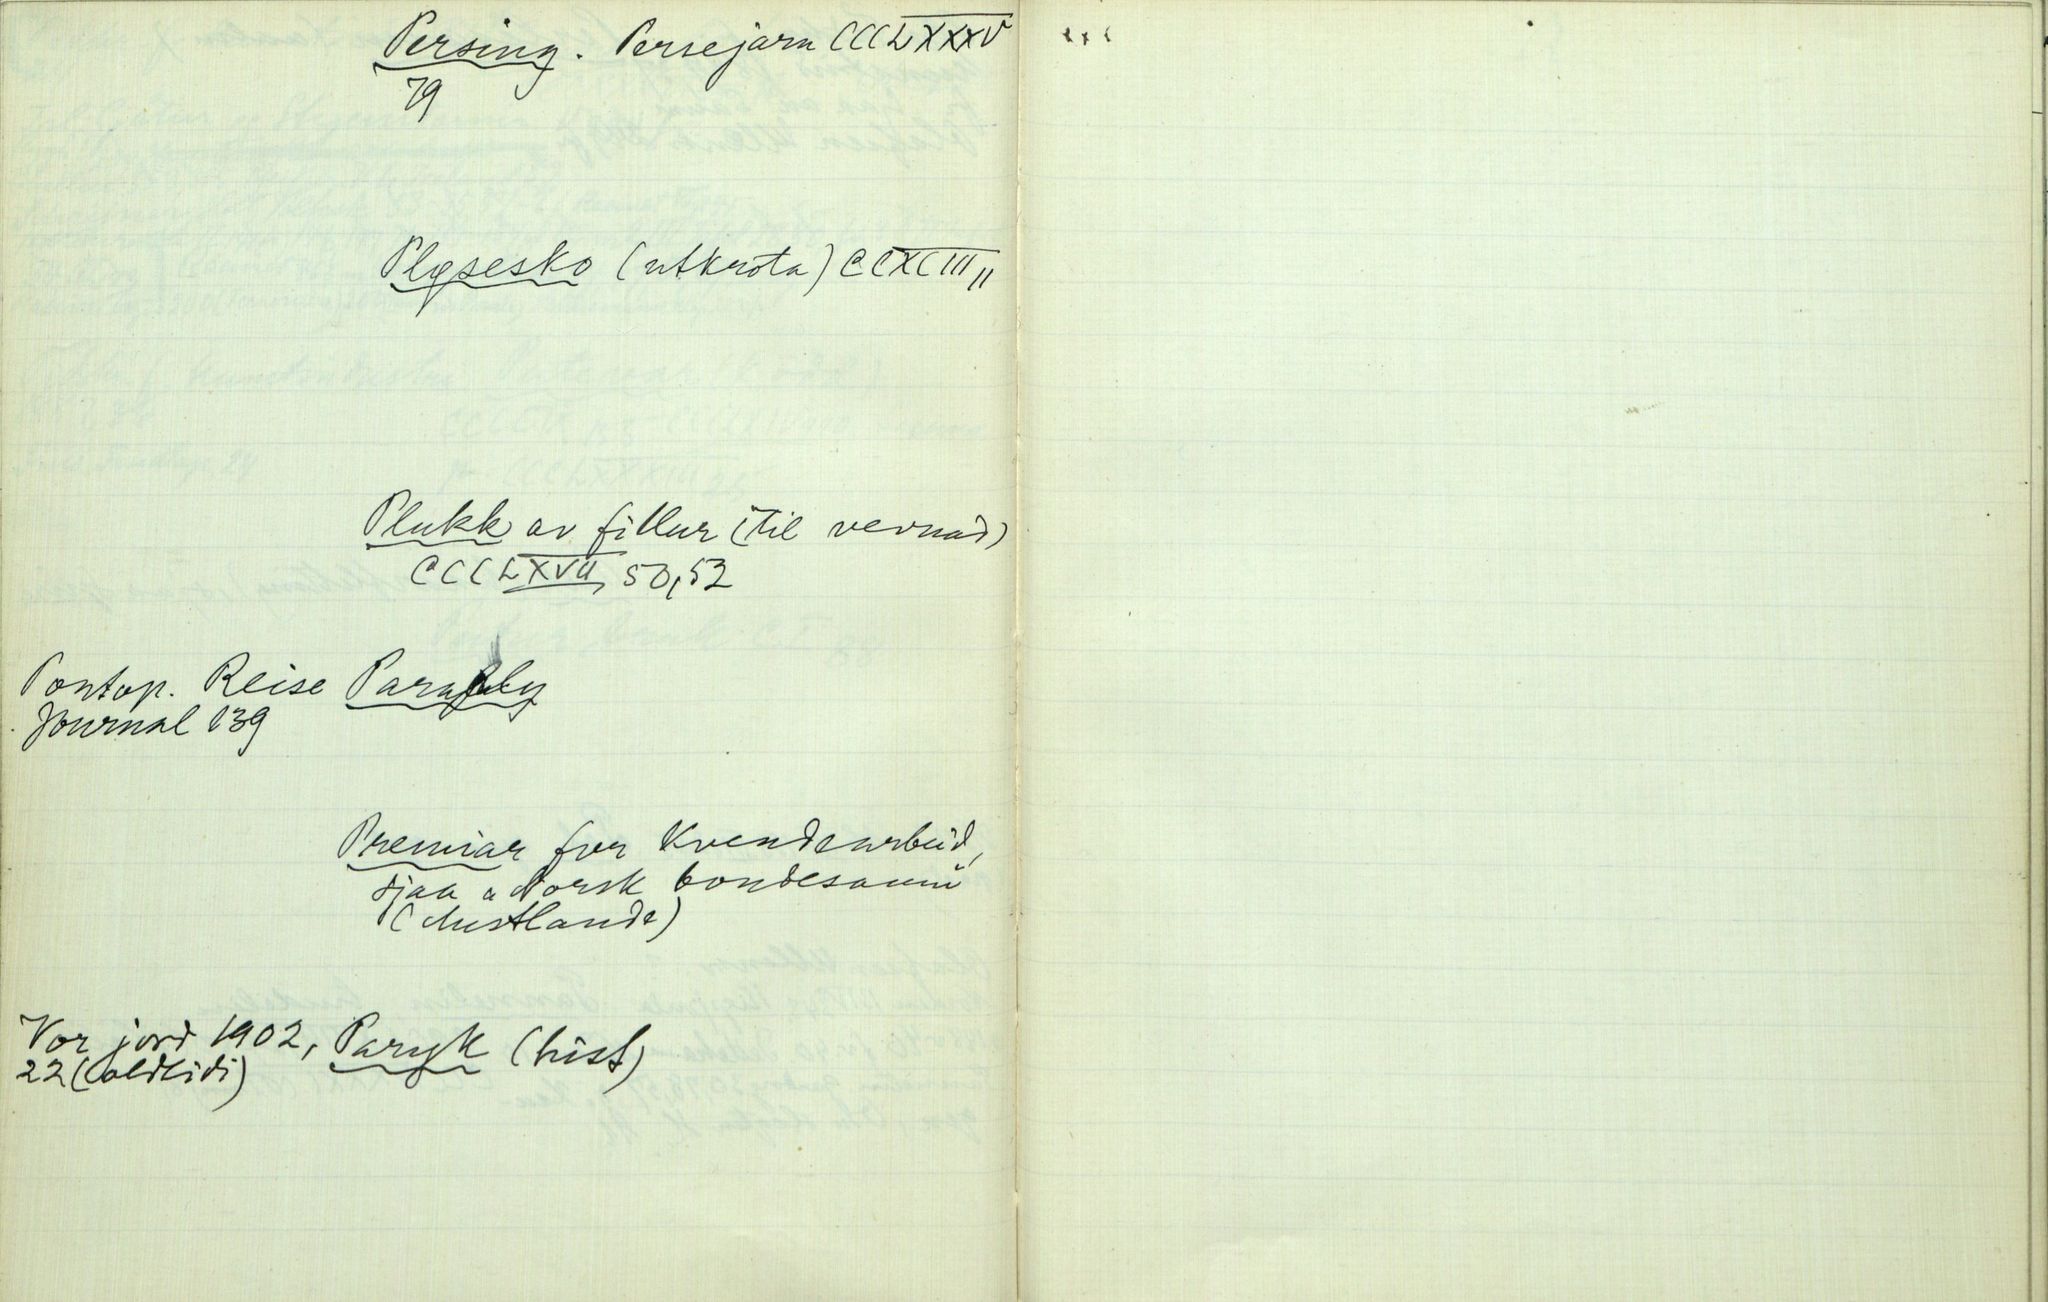 Persing. Persejarn CCCLXXXV
79
Plysesko (utkrota) CCXCIII 11
Plukk av fillur (til vevnad)
CCCLXVII, 50,52
Pontop. Reise Paraply
Journal 139
Premiar for Kvendearbeid,
sjaa "Norsk bondesaum"
(Austlande)
Vor jord 1902, Paryk (hist)
22 (oldtidi)